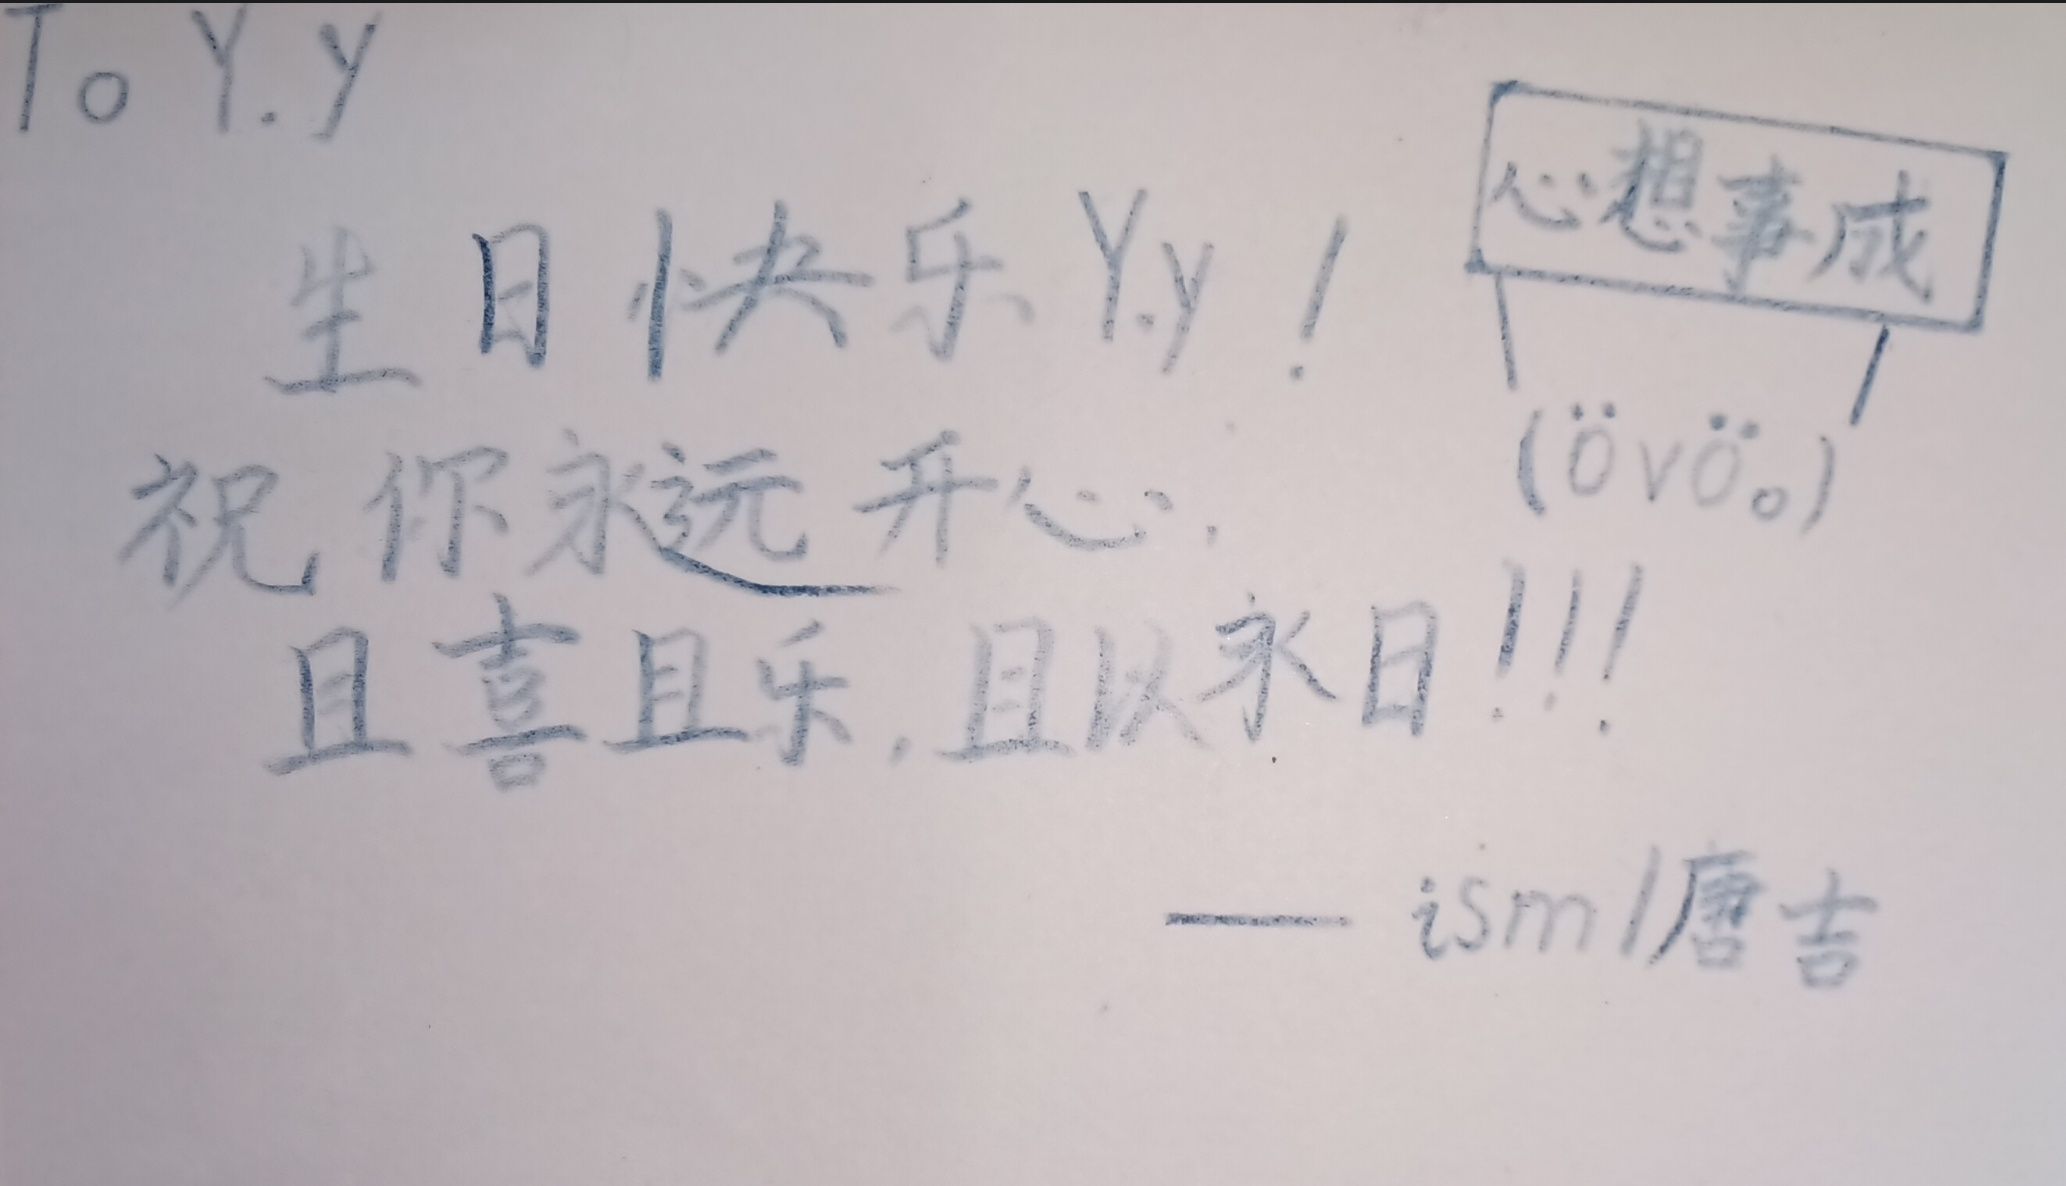 To Y.y
心想事成
生日快乐Y.y!
(övö。)
祝你永远开心.
且喜且乐,且以永日!!!
—— ism/唐吉